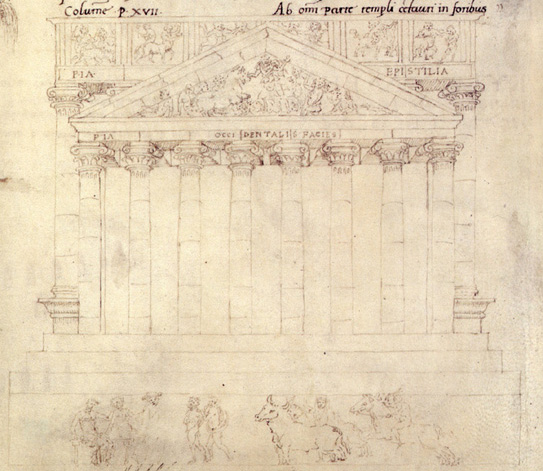 Colum̄e P·XVII· Ab om̄i parte templi cētauri in foribus
P·IA· EPISTILIA
P IA OCCIDENTALIIS FACIES